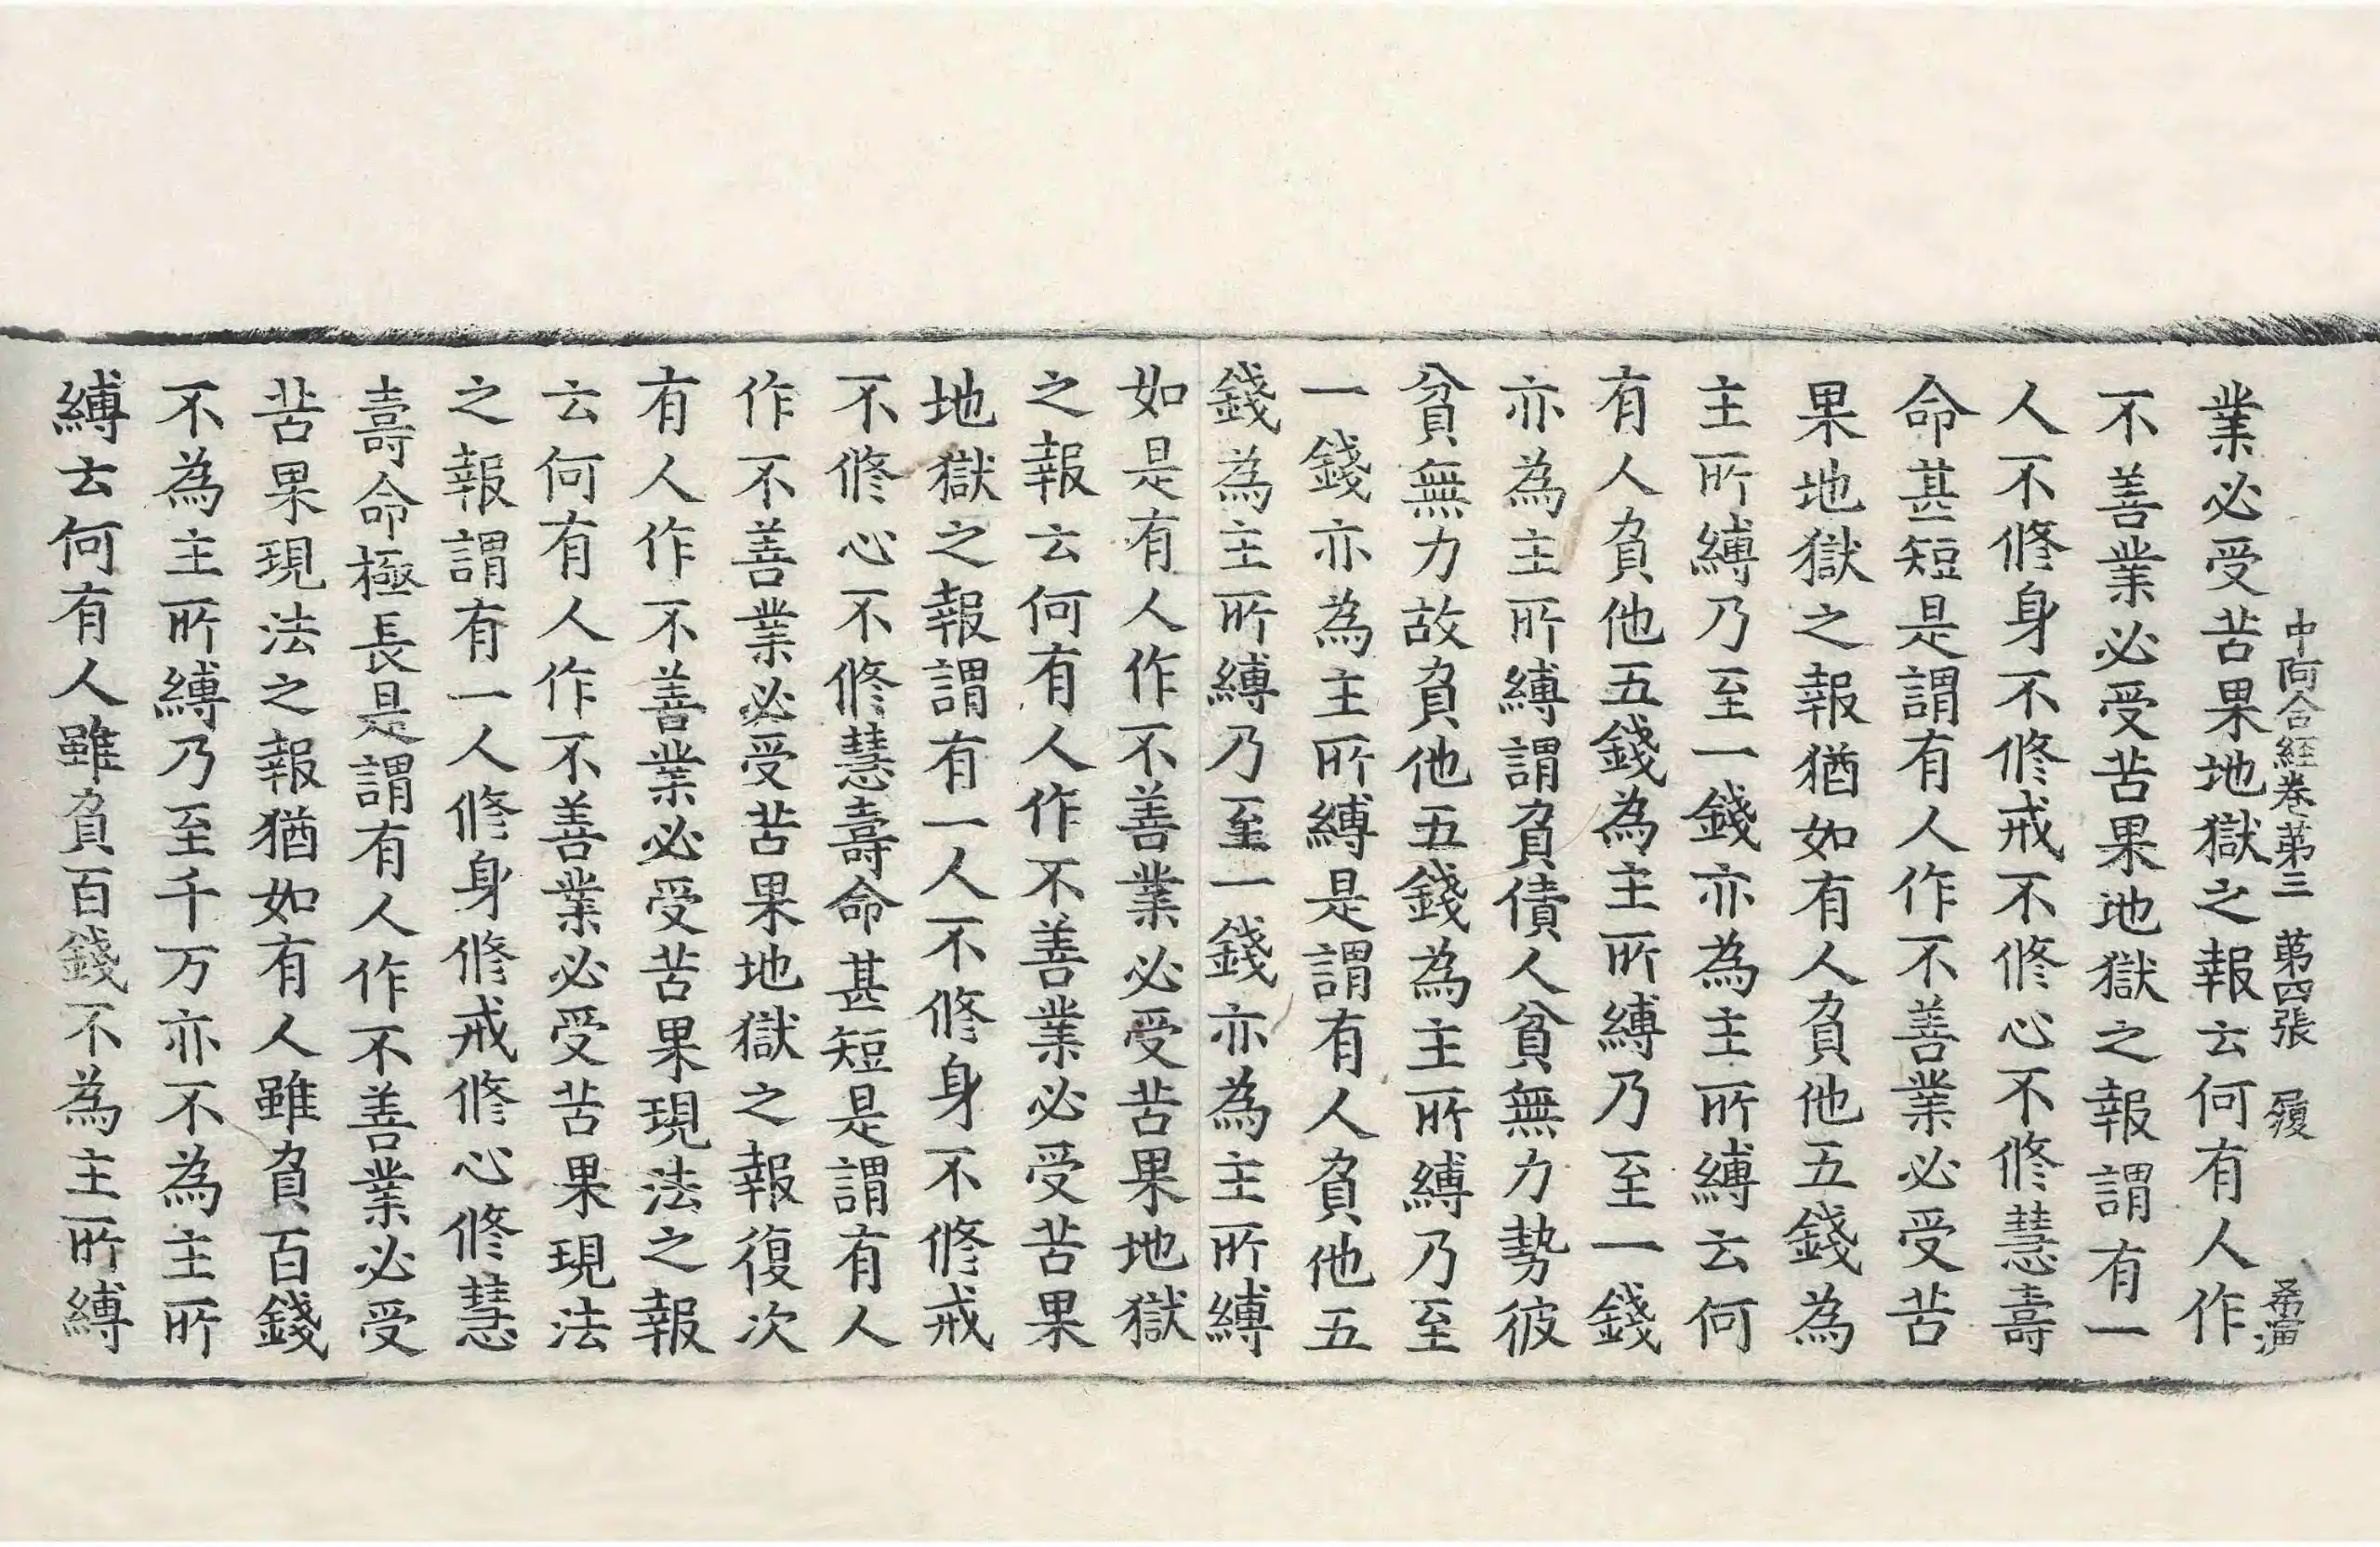 中阿含経卷第三 苐四張 履 希演
業必受苦果地獄之報云何有人作
不善業必受苦果地獄之報謂有一
人不修身不修戒不修心不修慧壽
命甚短是謂有人作不善業必受苦
果地獄之報猶如有人負他五錢為
主所縛乃至一錢亦為主所縛云何
有人負他五錢為主所縛乃至一錢
亦為主所縛謂負債人貧無力勢彼
貧無力故負他五錢為主所縛乃至
一錢亦為主所縛是謂有人負他五
錢為主所縛乃至一錢亦為主所縛
如是有人作不善業必受苦果地獄
之報云何有人作不善業必受苦果
地獄之報謂有一人不修身不修戒
不修心不修慧壽命甚短是謂有人
作不善業必受苦果地獄之報復次
有人作不善業必受苦果現法之報
云何有人作不善業必受苦果現法
之報謂有一人修身修戒修心修慧
壽命極長是謂有人作不善業必受
苦果現法之報猶如有人雖負百錢
不為主所縛乃至千万亦不為主所
縛云何有人雖負百錢不為主所縛